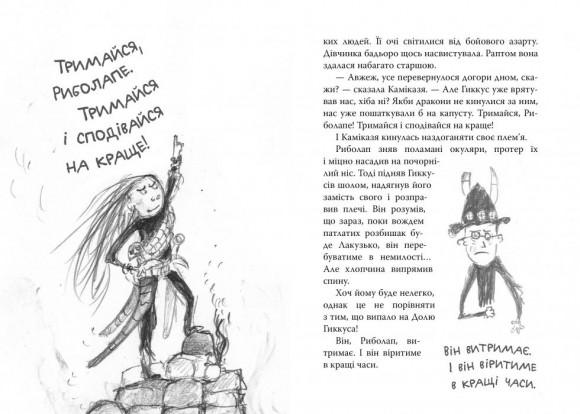 Тримайся,
Риболапе.
Тримайся
і сподівайся
на краще!
ких людей. Її очі світилися від бойового азарту.
Дівчинка бадьоро щось насвистувала. Раптом вона
здалася набагато старшою.
— Авжеж, усе перевернулося догори дном, ска-
жи? — сказала Камікадзя. — Але Гиккус уже вряту-
вав нас, хіба ні? Якби дракони не кинулися за ним,
нас уже пошаткували б на капусту. Тримайся, Ри-
болапе! Тримайся і сподівайся на краще!
І Камікадзя кинулась наздоганяти своє плем’я.
Риболап зняв поламані окуляри, протер їх
і міцно насадив на почорні-
лий ніс. Тоді підняв Гикку-
сів шолом, надягнув його
замість свого і розпра-
вив плечі. Він розумів,
що зараз, поки вождем
патлатих розбишак бу-
де Лакузько, він пере-
буватиме в немилості...
Але хлопчина випрямив
спину.
Хоч йому буде нелегко,
однак це не порівняти
з тим, що випало на Долю
Гиккуса!
Він, Риболап, ви-
тримає. І він віритиме
в кращі часи.
Він витримає.
І він віритиме
в кращі часи.